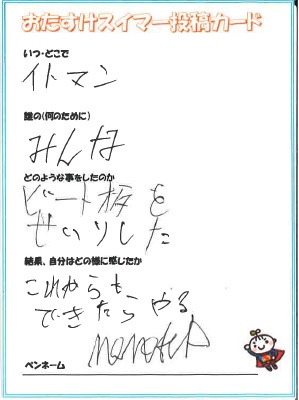 おたすけスイマー投稿カード
いつ・どこで
イトマン
誰の(何のために)
みんな
どのような事をしたのか
ビート板を
せいりした
結果、自分はどの様に感じたか
これからも
できたらやる
ペンネーム